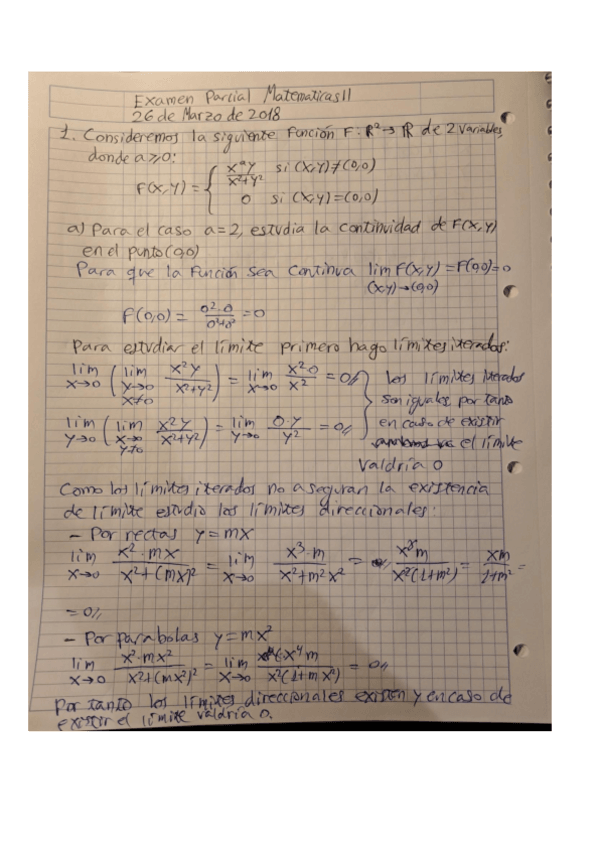 Examen Parcial Matematicas II
26 de Marzo de 2018
1. Consideremos la siguiente función F: ℝ² → ℝ de 2 variables,
donde a ≥ 0:
F(x,y) = { x^a y / x²+y² si (x,y) ≠ (0,0)
0 si (x,y) = (0,0)
a) Para el caso a = 2, estudia la continuidad de F(x,y)
en el punto (0,0)
Para que la función sea continua lim F(x,y) = F(0,0) = 0
(x,y)→(0,0)
F(0,0) = 0²·0 / 0²+0² = 0
Para estudiar el límite primero hago límites iterados:
lim x→0 ( lim y→0 x≠0 x²y / x²+y² ) = lim x→0 x²·0 / x² = 0//
lim y→0 ( lim x→0 y≠0 x²y / x²+y² ) = lim y→0 0·y / y² = 0//
los límites iterados
son iguales, por tanto
en caso de existir
el límite
valdría 0
Como los límites iterados no aseguran la existencia
de límite estudio los límites direccionales:
- Por rectas y = mx
lim x→0 x²·mx / x²+(mx)² = lim x→0 x³·m / x²+m²x² = x³m / x²(1+m²) = xm / 1+m² =
= 0//
- Por parabolas y = mx²
lim x→0 x²·mx² / x²+(mx²)² = lim x→0 x⁴m / x²(1+mx²) = 0//
Por tanto los límites direccionales existen y en caso de
existir el límite valdría 0.